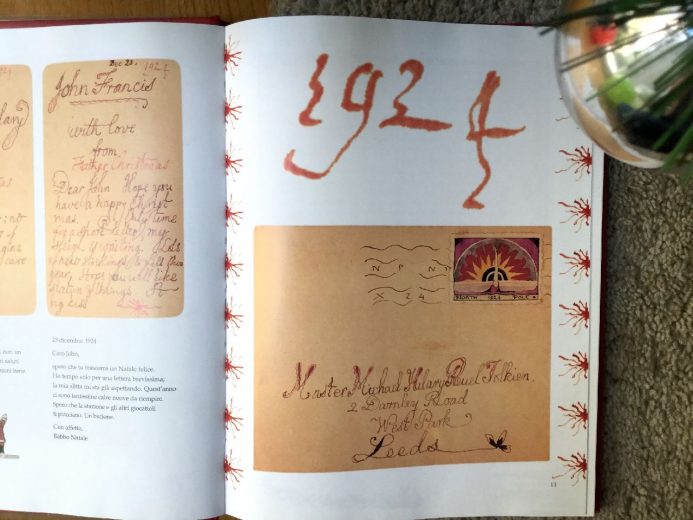 Dec 23. 1924
John Francis
with love
from
Father Christmas
Dear John Hope you
have a happy Christ
mas. Only time
for a short letter, my
sleigh is waiting. Lots
of new stockings to fill this
year. Hope you will like
station & things. A
big kiss
23 dicembre 1924
Caro John,
spero che tu trascorra un Natale felice.
Ho tempo solo per una lettera brevissima;
la mia slitta mi sta già aspettando. Quest'anno
ci sono tantissime calze nuove da riempire.
Spero che la stazione e gli altri giocattoli
ti piacciano. Un bacione.
Con affetto,
Babbo Natale
1924
N P N
X 24
NORTH 1924 POLE
Master Michael Hilary Reuel Tolkien
2 Darnley Road
West Park
Leeds
11